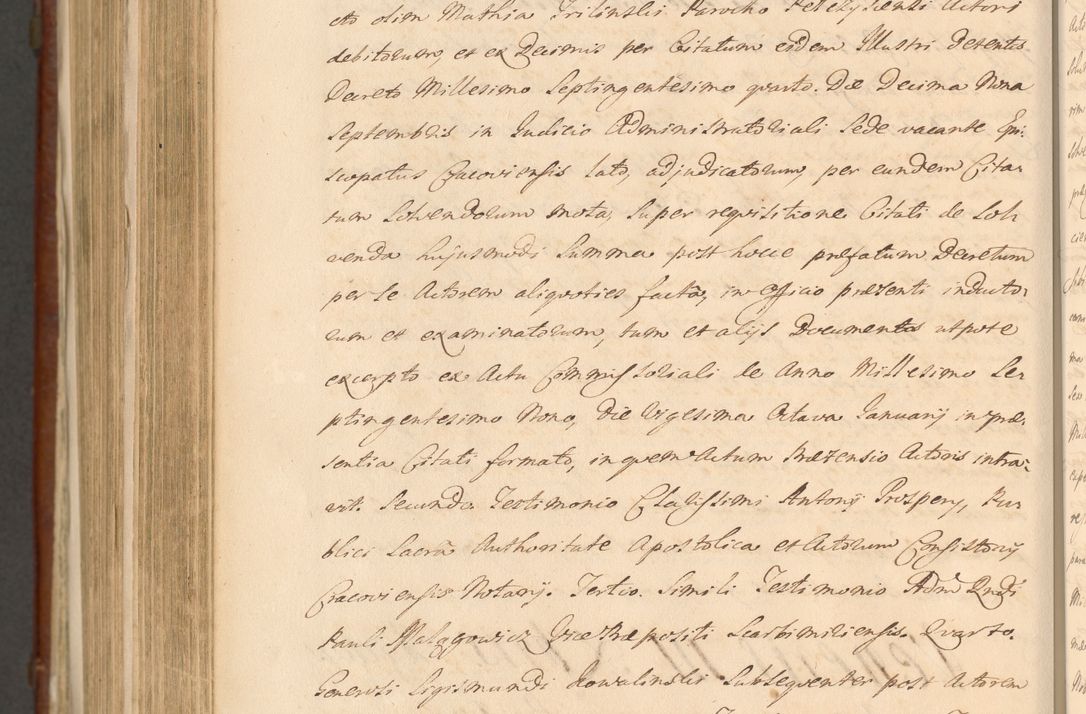 cto olim Mathia Trilinski Parocho Pelczyscensi Actori
debitorum, et ex Decimis per Citatum eidem Illustri detentis
Decreto Millesimo Septingentesimo quarto. Die Decima Nona
Septembris in Judicio Administratoriali Sede vacante Epi:
scopatus Cracoviensis lato, adjudicatorum, per eundem Cita:
tum Solvendorum mota, Super requisitione Citati de Sol:
venda hujusmodi Summa post hocce præfatum Decretum
per se Actorem aliquoties facta, in Officio præsenti inducto:
rum et examinatorum, tum et alijs Documentis utpote
excerpto ex Actu Commissoriali de Anno Millesimo Se:
ptingentesimo Nono, Die Vigesima Octava Januarij in præ:
sentia Citati formato, in quem Actum Prætensio Actoris intra:
vit. Secundo. Testimonio Clarissimi Antonij Prospery, Pu:
blici Sacrâ Authoritate Apostolica et Actorum Consistorij
Cracoviensis Notarij. Tertio. Simili Testimonio Adm Rndi
Pauli Małągowicz Vice Præpositi Scarbimiriensis. Quarto.
Generosi Sigismundi Kowalinski Subsequenter post Actorem